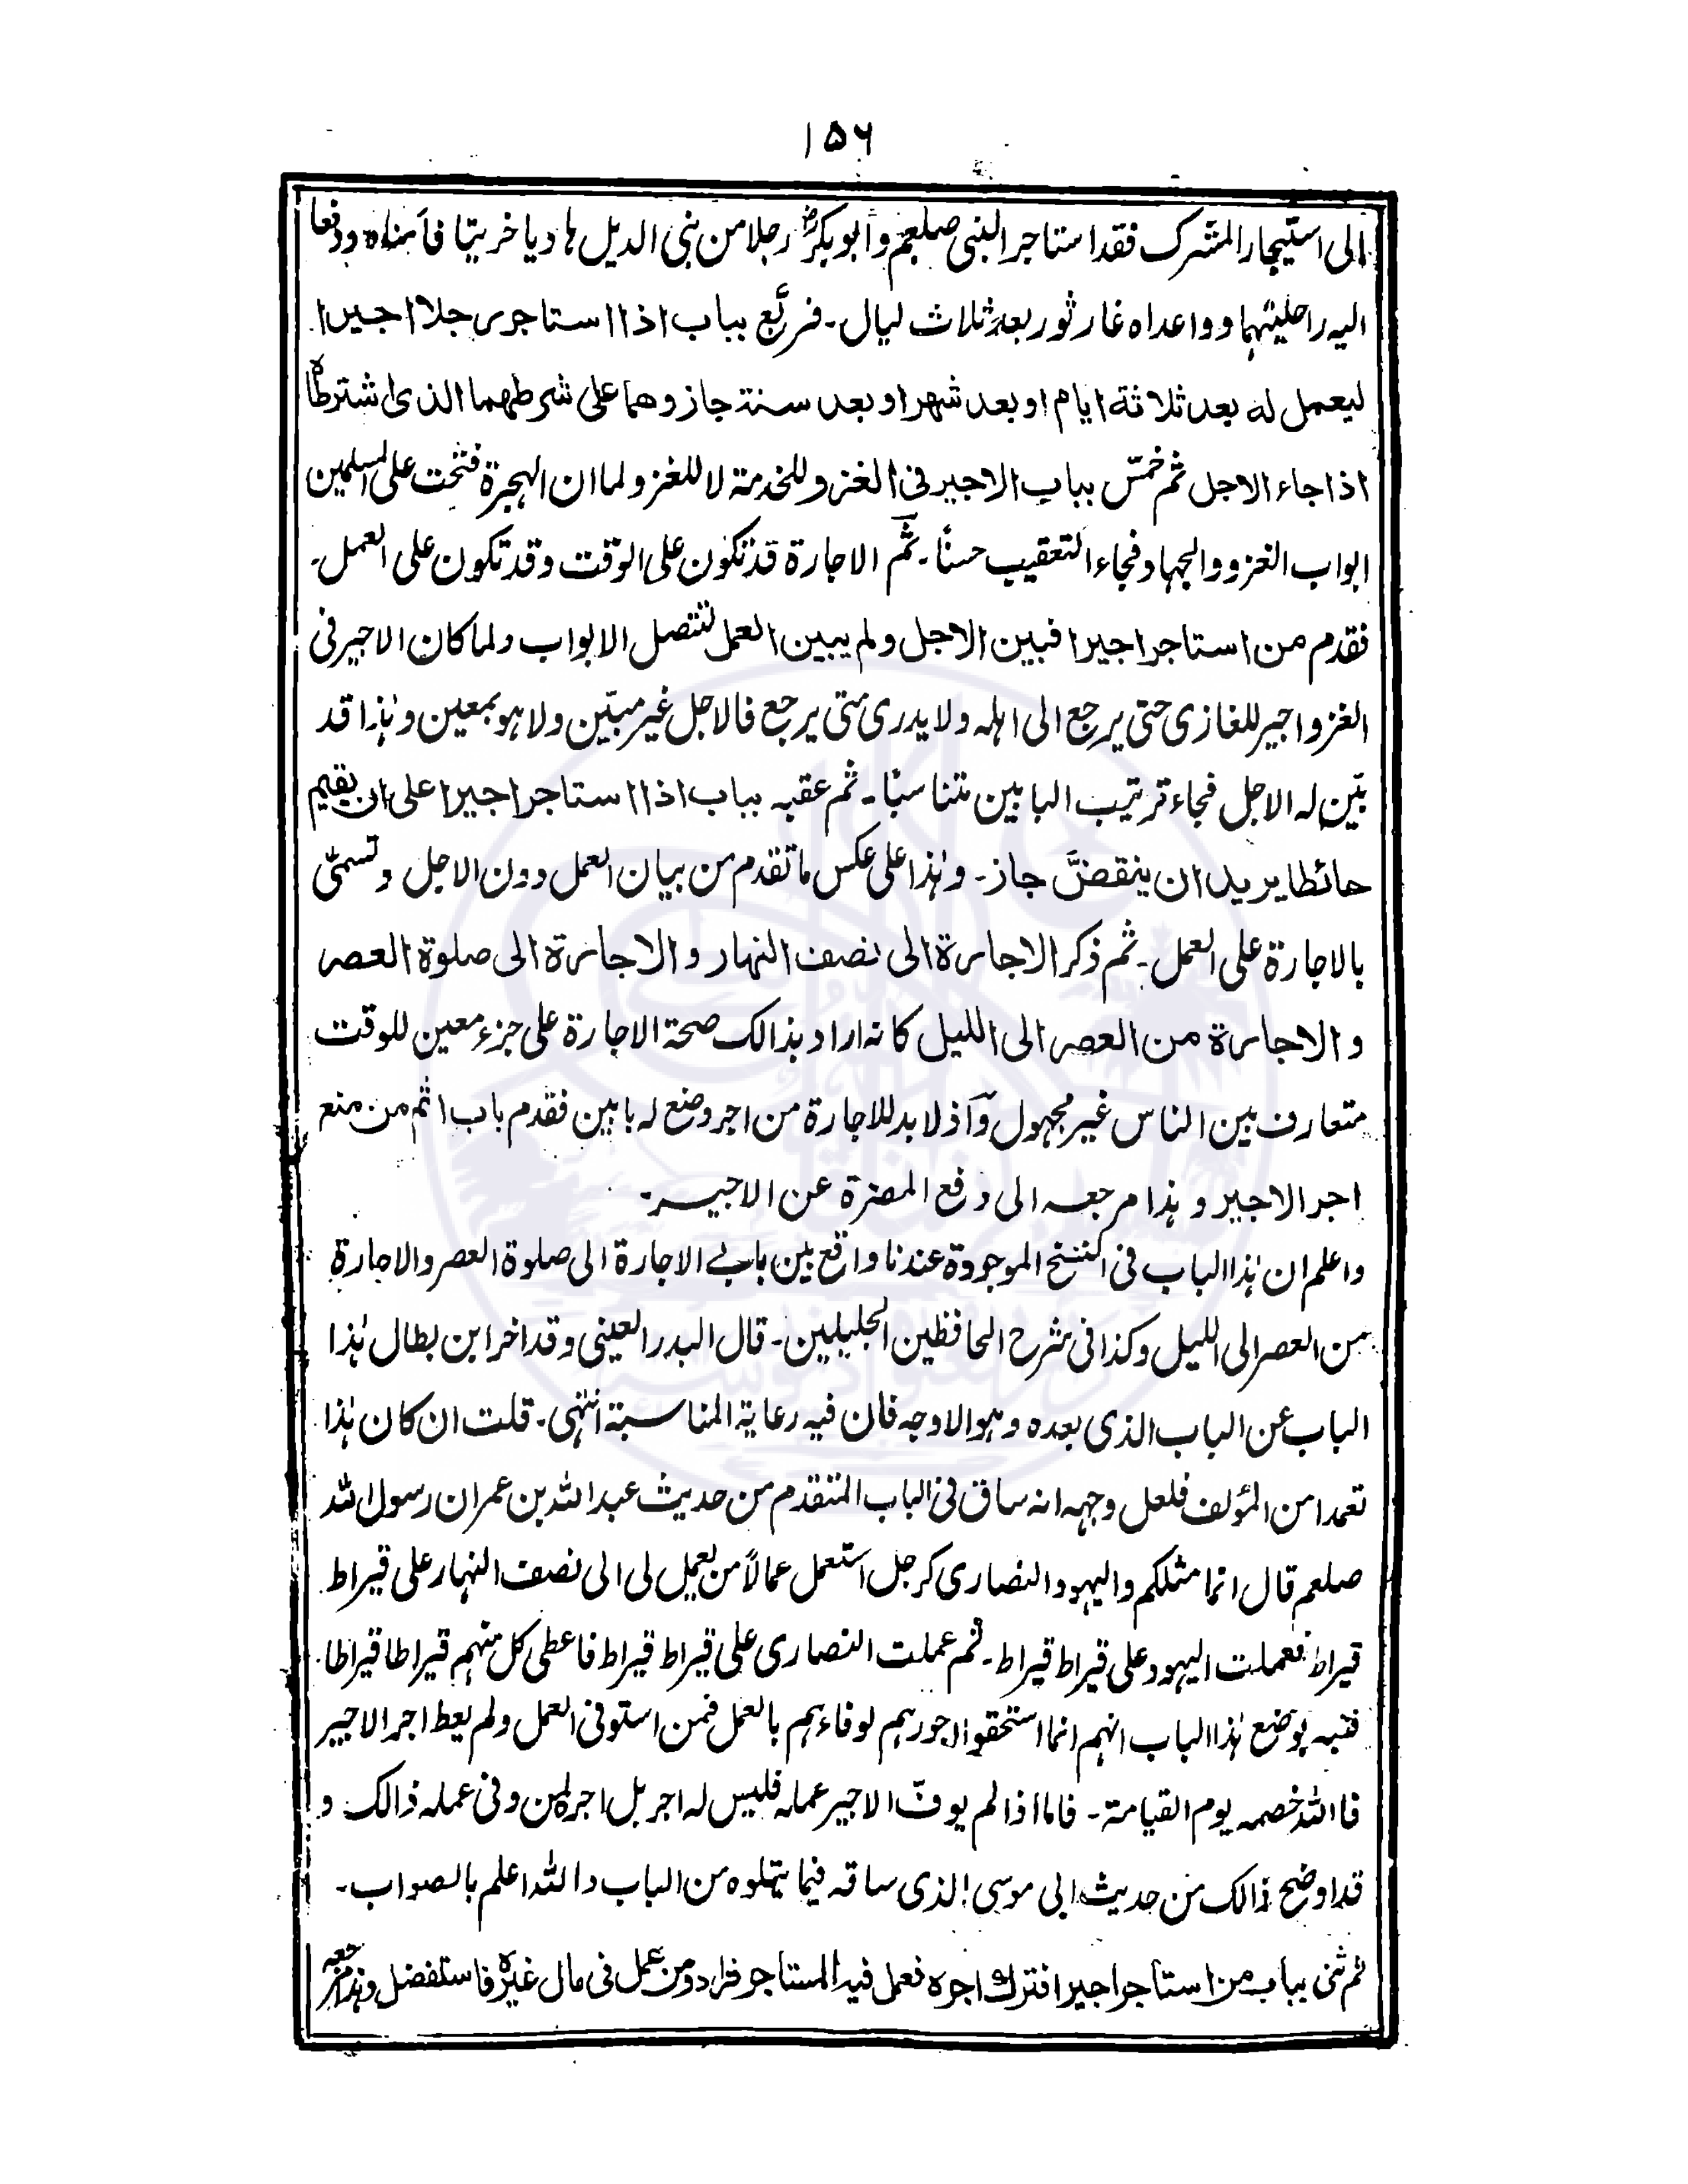 ۱۵۶
الی استیجار المشرک فقد استاجر النبی صلعم و ابوبکرؓ رجلا من بنی الدیل ہادیا خریتا فأمناہ ودفعا
الیہ راحلیتہما وواعداہ غار ثور بعد ثلاث لیال۔ فربّع بباب اذا استاجر رجلا اجیرا
لیعمل لہ بعد ثلاثة ایام او بعد شهر او بعد سنة جاز وهما علی شرطهما الذی اشترطاہ
اذا جاء الاجل ثم خمّس بباب الاجیر فی الغزو للخدمة لا للغزو لما ان الہجرة فتحت علی المسلمین
ابواب الغزو والجہاد فجاء التعقیب حسنًا۔ ثم الاجارة قد تکون علی الوقت وقد تکون علی العمل۔
فقدم من استاجر اجیرا فبین الاجل ولم یبین العمل لتتصل الابواب ولما کان الاجیر فی
الغزو اجیر للغازی حتی یرجع الی اہلہ ولا یدری متی یرجع فالاجل غیر مبیّن ولا ہو بمعین وہٰذا قد
بیّن لہ الاجل فجاء ترتیب البابین متناسبًا۔ ثم عقبہ بباب اذا استاجر اجیرا علی ان یقیم
حائطا یرید ان ینقضّ جاز۔ وہٰذا علی عکس ما تقدم من بیان العمل دون الاجل وتسمّی
بالاجارة علی العمل۔ ثم ذکر الاجارة الی نصف النهار و الاجارة الی صلوة العصر
و الاجارة من العصر الی اللیل کانہ اراد بذالک صحة الاجارة علی جزء معین للوقت
متعارف بین الناس غیر مجہول وآذ لابد للاجارة من اجر وضع لہ بابین فقدم باب اثم من منع
اجر الاجیر و ہذا مرجعہ الی دفع المضرة عن الاجیر۔
واعلم ان ہٰذا الباب فی النسخ الموجودة عندنا واقع بین بابے الاجارة الی صلوة العصر والاجارة
من العصر الی اللیل وکذا فی شرح الحافظین الجلیلین۔ قال البدر العینی وقد اخر ابن بطال ہٰذا
الباب عن الباب الذی بعدہ وہو الاوجہ فان فیہ رعایة المناسبة انتہی۔ قلت ان کان ہٰذا
تعمدا من المؤلف فلعل وجہہ انہ ساق فی الباب المتقدم من حدیث عبداللہ بن عمر ان رسول اللہ
صلعم قال انما مثلکم والیہود والنصاری کرجل استعمل عمالًا من یعمل لی الی نصف النہار علی قیراط
قیراط فعملت الیہود علی قیراط قیراط۔ ثم عملت النصاری علی قیراط قیراط فاعطی کل منہم قیراطا قیراطا
فنبہ بوضع ہٰذا الباب انہم انما استحقوا اجورہم لوفاءہم بالعمل فمن استوفی العمل ولم یعط اجر الاجیر
فاللہ خصمہ یوم القیامة۔ فاما اذا لم یوفّ الاجیر عملہ فلیس لہ اجر بل اجرہ لمن وفی عملہ ذالک و
قد اوضح ذالک من حدیث ابی موسی الذی ساقہ فیما یتلوہ من الباب واللہ اعلم بالصواب۔
ثم ثنی بباب من استاجر اجیرا فترک اجرہ فعمل فیہ المستاجر فزاد ومن عمل فی مال غیرہ فاستفضل وہٰذا مرجعہ